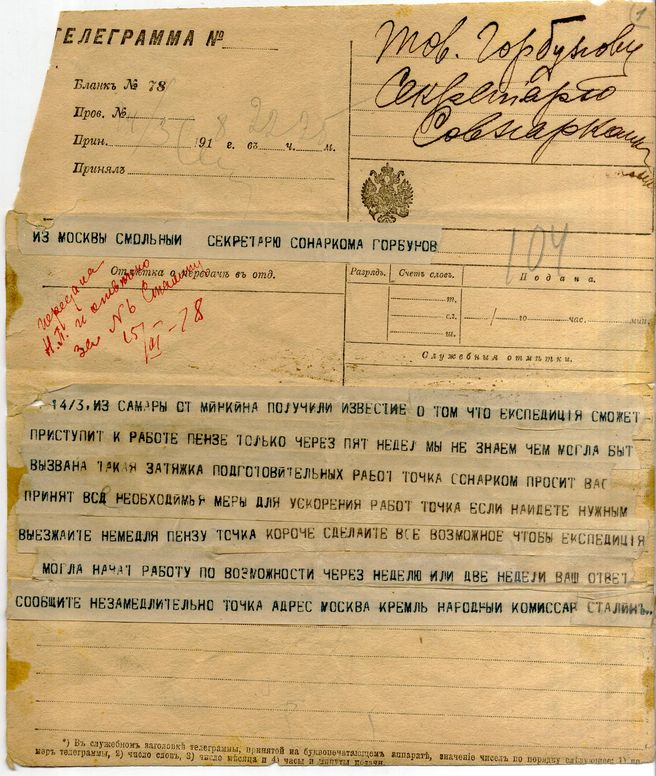 1
ТЕЛЕГРАММА №
Тов. Горбунову
Секретарю
Совнаркома
Бланкъ № 78
Пров. №
Прин. 191 8 г. въ ч. м.
Принялъ
ИЗ МОСКВЫ СМОЛЬНЫЙ СЕКРЕТАРЮ СОНАРКОМА ГОРБУНОВ
104
Отмѣтка о передачѣ въ отд.
Разрядъ. Счетъ словъ. Подана.
т.
сл. / го час. мин.
ш.
Служебныя отмѣтки.
14/3, ИЗ САМАРЫ ОТ МИРКИНА ПОЛУЧИЛИ ИЗВЕСТИЕ О ТОМ ЧТО ЕКСПЕДИЦIЯ СМОЖЕТ
ПРИСТУПИТ К РАБОТЕ ПЕНЗЕ ТОЛЬКО ЧЕРЕЗ ПЯТ НЕДЕЛ МЫ НЕ ЗНАЕМ ЧЕМ МОГЛА БЫТ
ВЫЗВАНА ТАКАЯ ЗАТЯЖКА ПОДГОТОВИТЕЛЬНЫХ РАБОТ ТОЧКА СОНАРКОМ ПРОСИТ ВАС
ПРИНЯТ ВСД НЕОБХОДИМЬЯ МЕРЫ ДЛЯ УСКОРЕНИЯ РАБОТ ТОЧКА ЕСЛИ НАЙДЕТЕ НУЖНЫМ
ВЫЕЗЖАИТЕ НЕМЕДЛЯ ПЕНЗУ ТОЧКА КОРОЧЕ СДЕЛАИТЕ ВСЕ ВОЗМОЖНОЕ ЧТОБЫ ЕКСПЕДИЦIЯ
МОГЛА НАЧАТ РАБОТУ ПО ВОЗМОЖНОСТИ ЧЕРЕЗ НЕДЕЛЮ ИЛИ ДВЕ НЕДЕЛИ ВАШ ОТВЕТ
СООБЩИТЕ НЕЗАМЕДЛИТЕЛЬНО ТОЧКА АДРЕС МОСКВА КРЕМЛЬ НАРОДНЫЙ КОМИССАР СТАЛИНЪ..
*) Въ служебномъ заголовкѣ телеграммы, принятой на буквопечатающемъ аппаратѣ, значеніе чиселъ по порядку слѣдующее: 1) но-
меръ телеграммы, 2) число словъ, 3) число мѣсяца и 4) часы и минуты подачи.